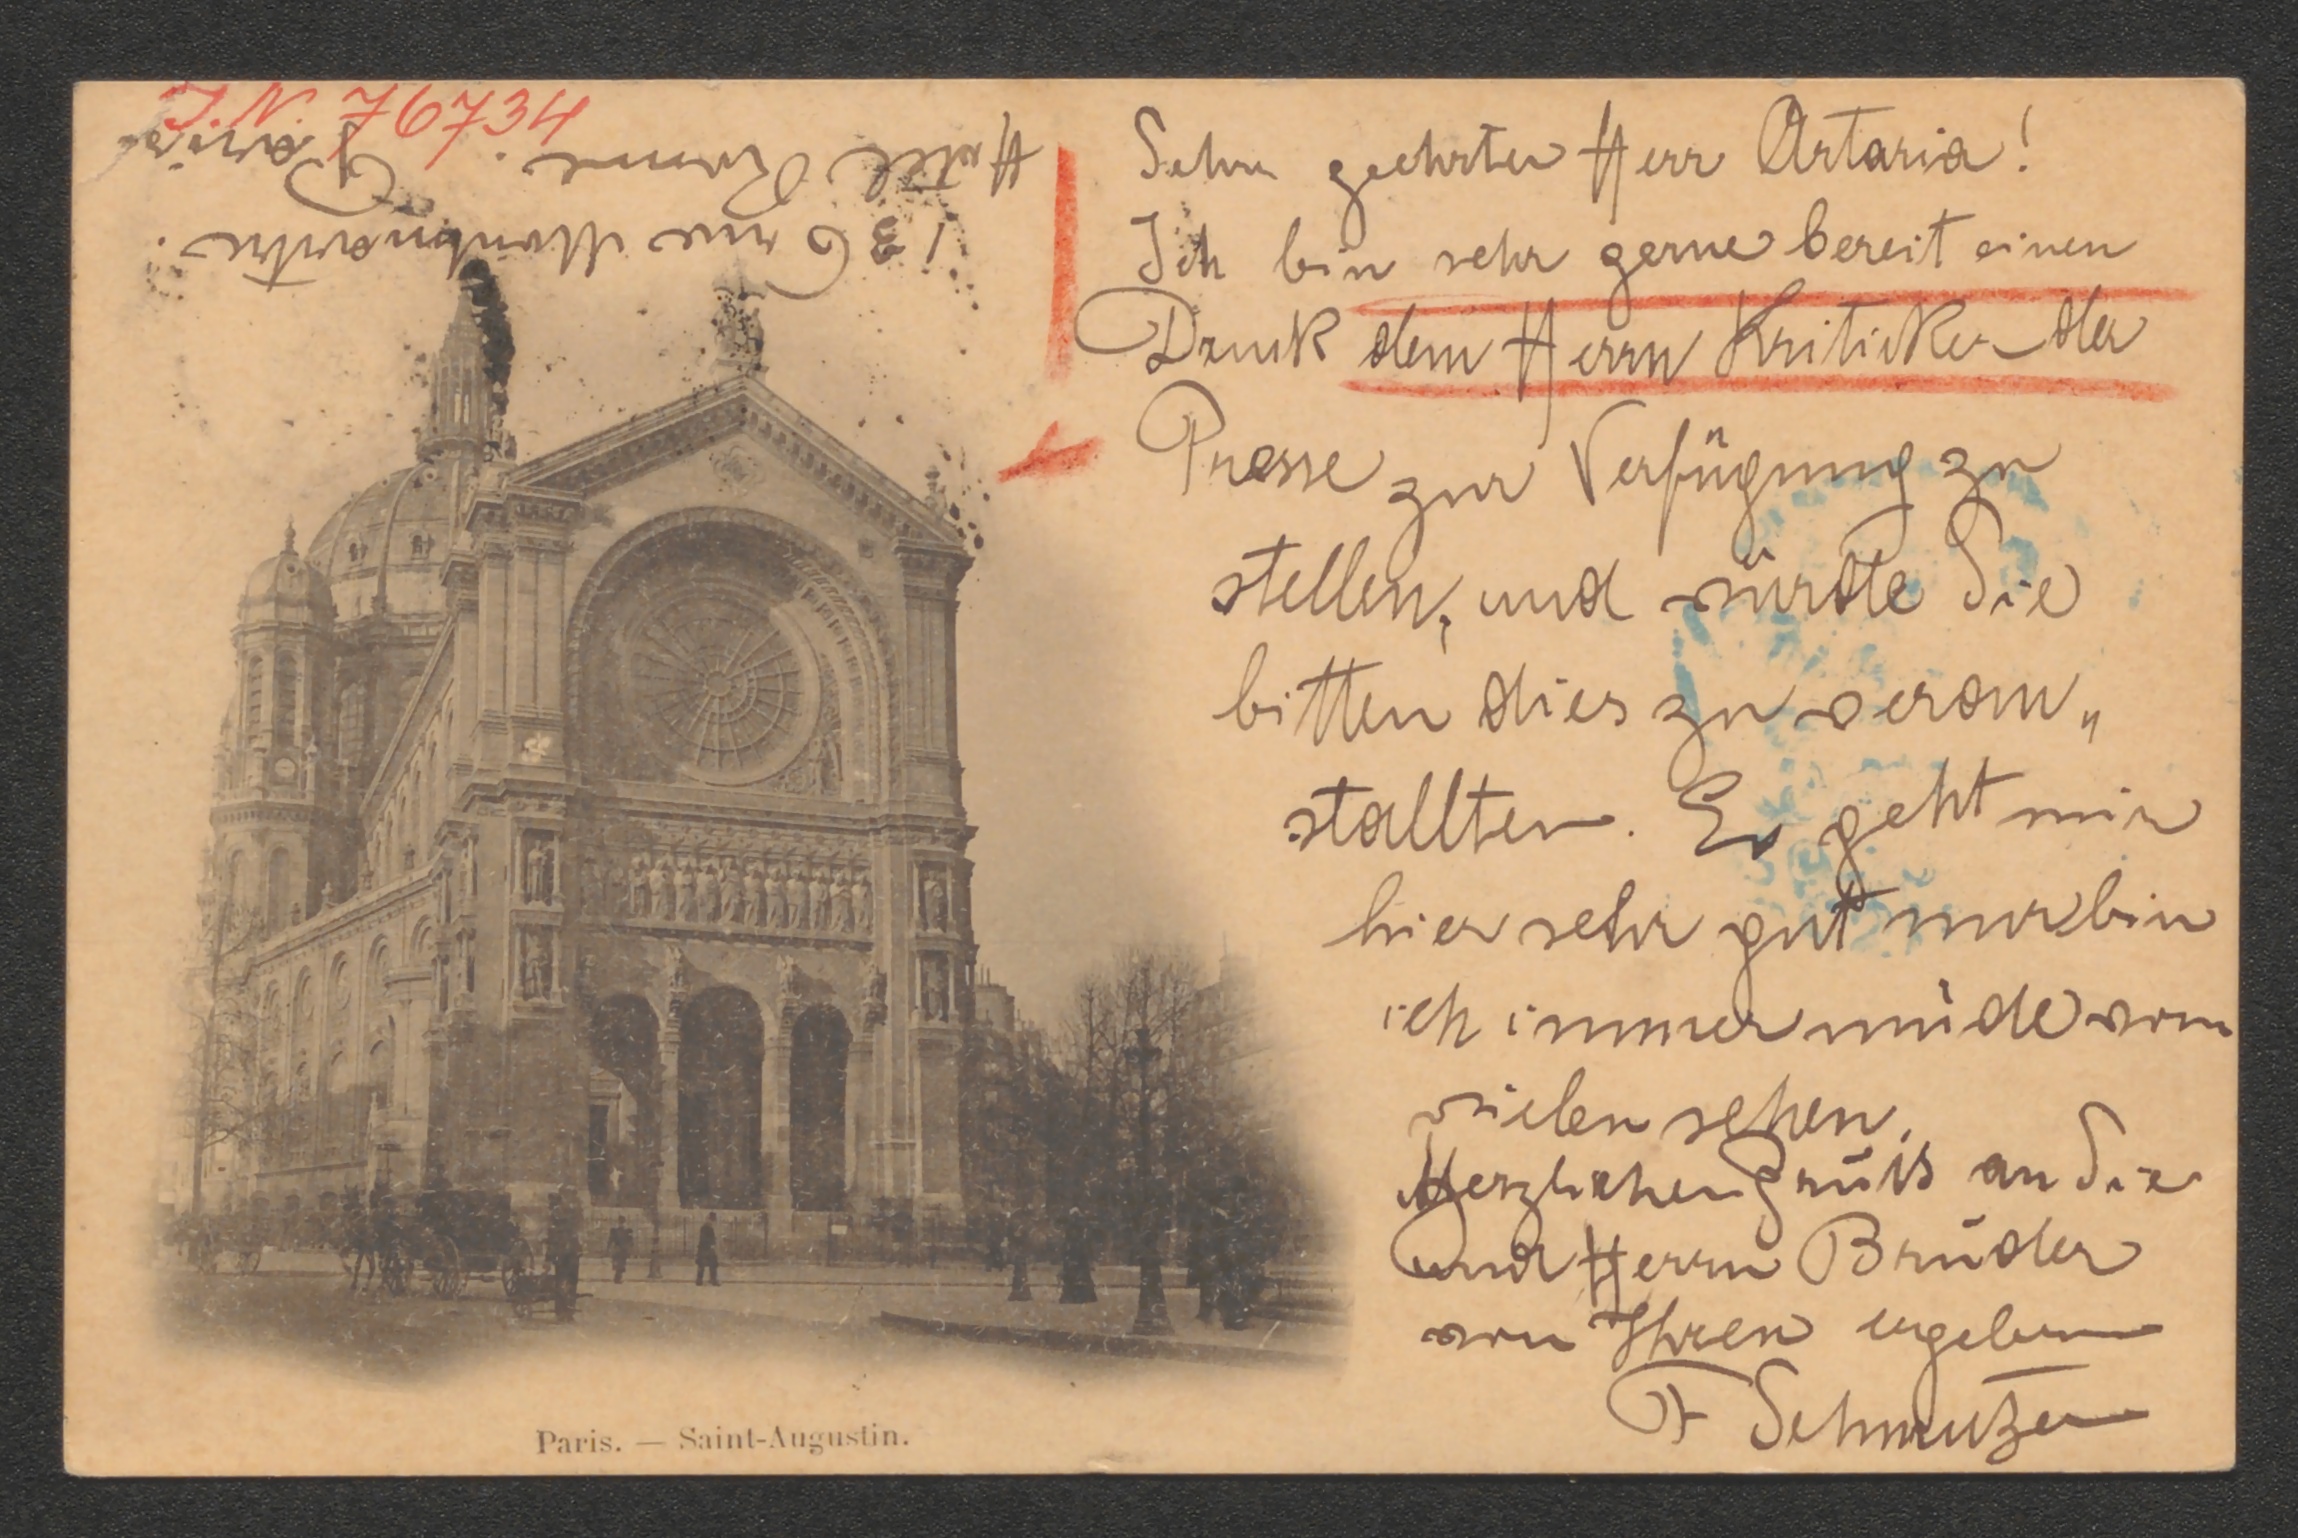 J. N. 76734
Sehr geehrter Herr Artaria!
Ich bin sehr gerne bereit einen
Druck dem Herrn Kritiker der
Presse zur Verfügung zu
stellen, und würde Sie
bitten dies zu veran„
stallten. Es geht mir
hier sehr gut nur bin
ich immer müde vom
vielen sehen.
Herzlichen Gruß an Sie
und Herrn Bruder
von Ihren ergeben
F Schmutzer
13 rue Montmartre.
Hotel Rome. Paris
Paris. — Saint-Augustin.